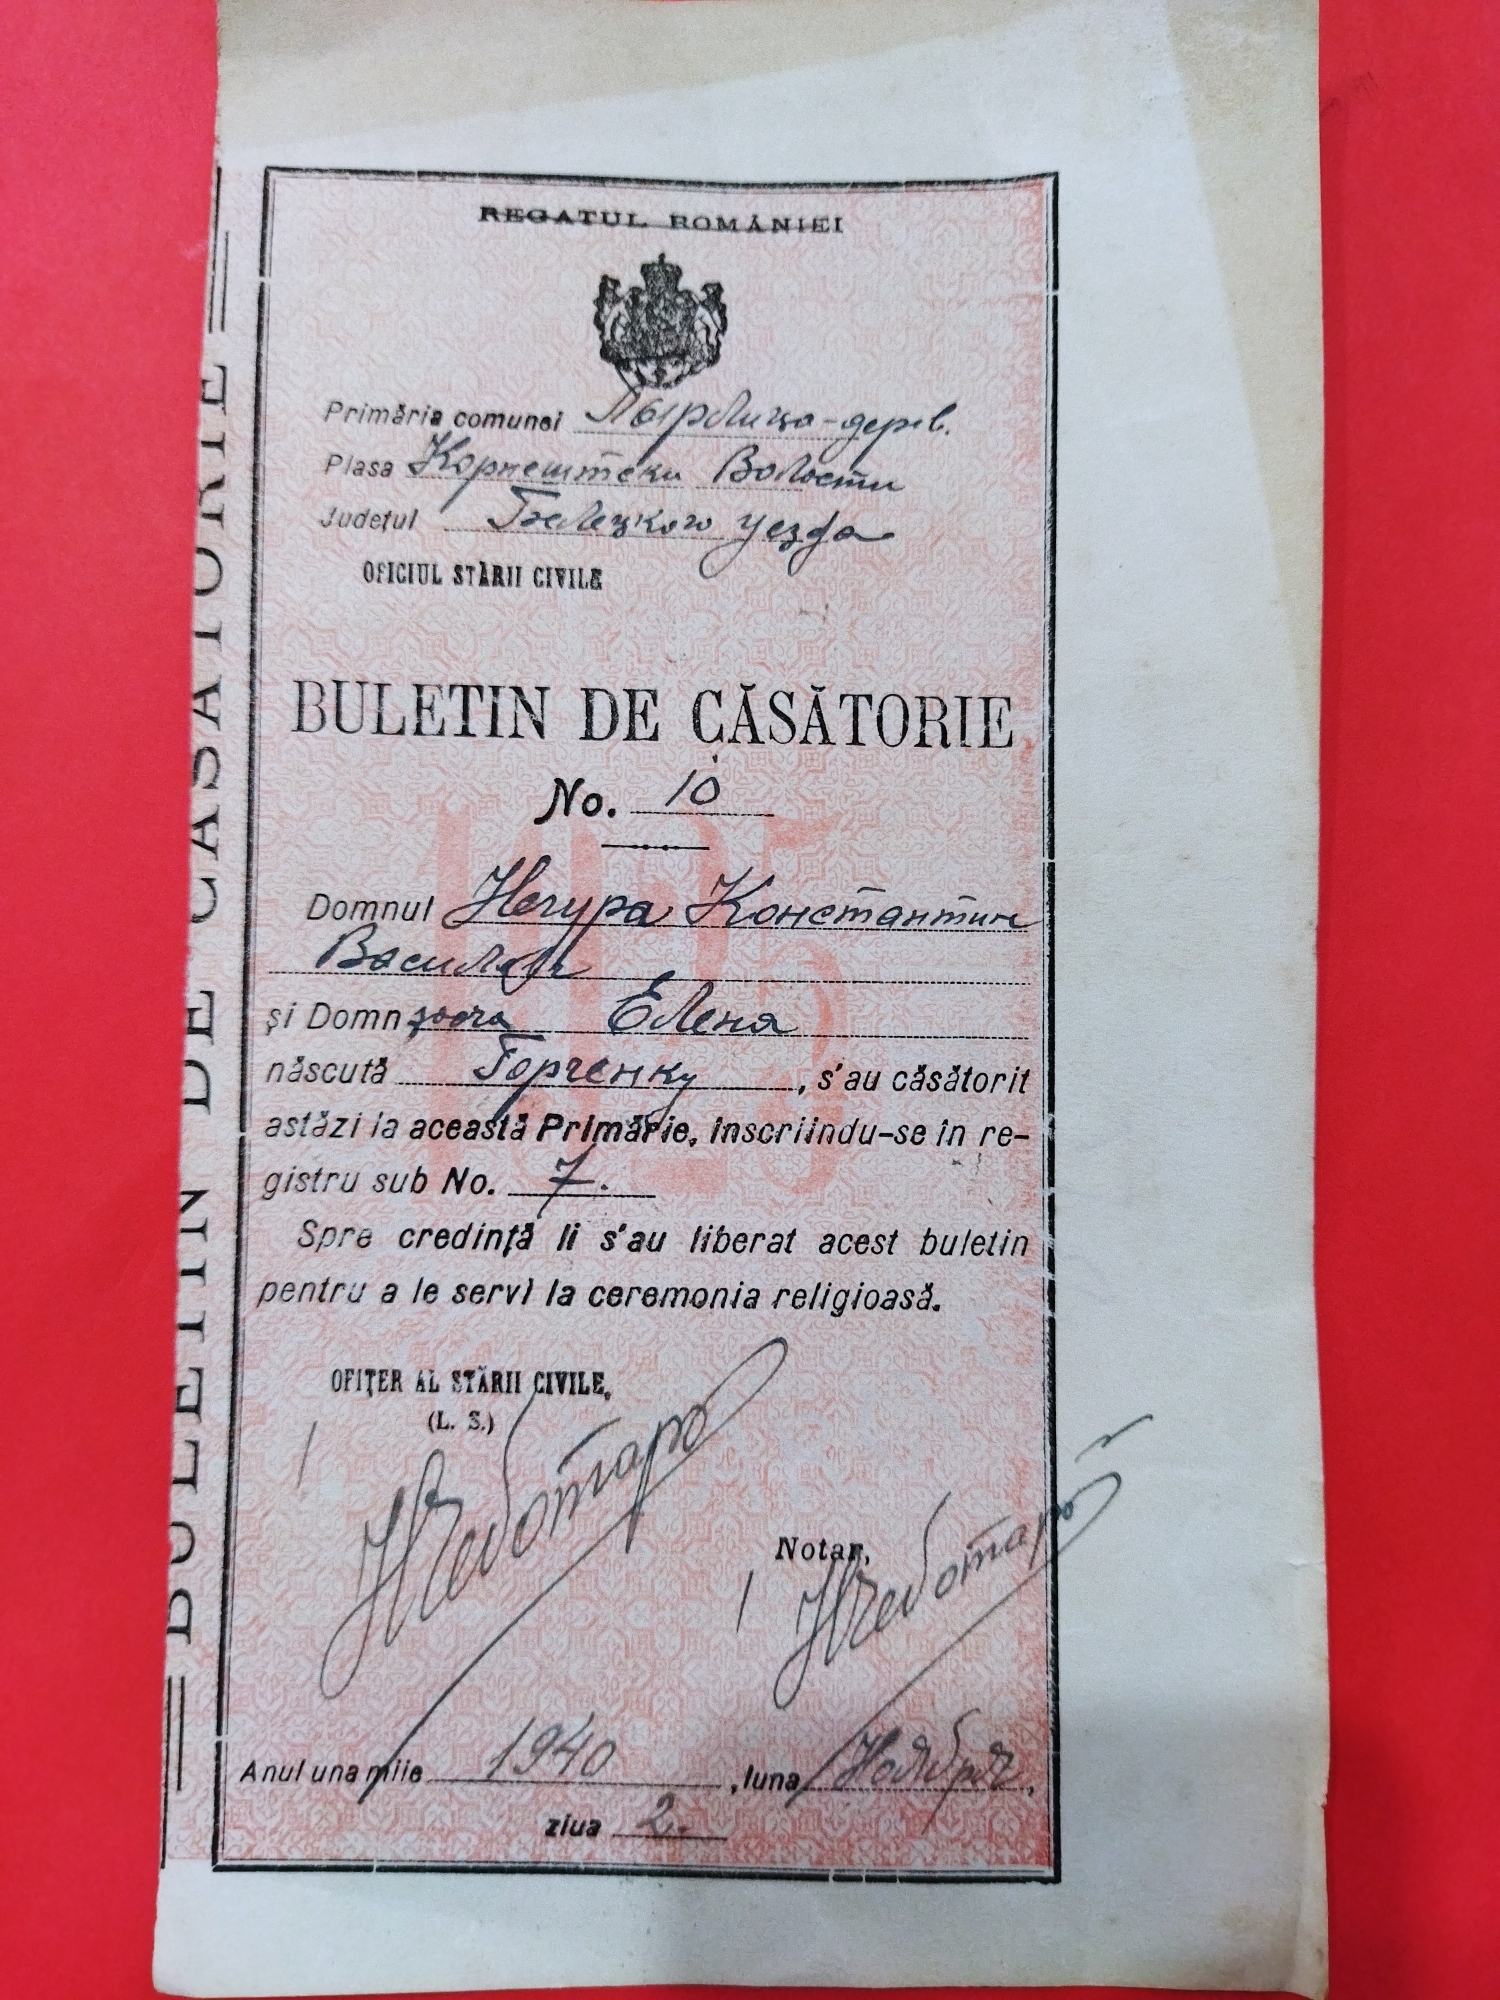 BULETIN DE CASATORIE
REGATUL ROMÂNIEI
Primăria comunei Пырлица-дерев.
Plasa Корнештски Волости
Județul Бєлецкого уезда
OFICIUL STĂRII CIVILE
BULETIN DE CĂSĂTORIE
No. 10
1925
Domnul Негура Константин
Василові
și Domnșoara Елена
născută Горченку, s'au căsătorit
astăzi la această Primărie, înscriindu-se în re-
gistru sub No. 7.
Spre credință li s'au liberat acest buletin
pentru a le servi la ceremonia religioasă.
OFIȚER AL STĂRII CIVILE,
(L. S.)
Notar,
Anul una mile 1940, luna Ноября,
ziua 2.